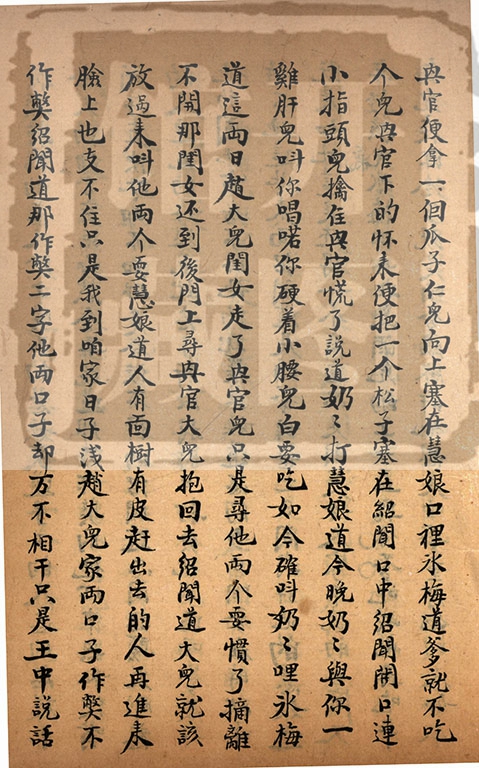 興官便拿一個瓜子仁兒向上塞在慧娘口裡氷梅道爹就不吃
个兒興官下的怀来便把一个松子塞在紹聞口中紹聞開口連
小指頭兒擒住興官慌了說道奶〻打慧娘道今晚奶〻與你一
雞肝兒叫你唱喏你硬着小腰兒白要吃如今確叫奶〻哩氷梅
道這両日趙大兒閨女走了興官兒只是尋他両个耍慣了摘離
不開那閨女还到後門上尋興官大兒抱回去紹聞道大兒就該
放過来叫他両个耍慧娘道人有面樹有皮赶出去的人再進来
臉上也支不住只是我到咱家日子浅趙大兒家両口子作獘不
作獘紹聞道那作獘二字他両口子却万不相干只是王中說話